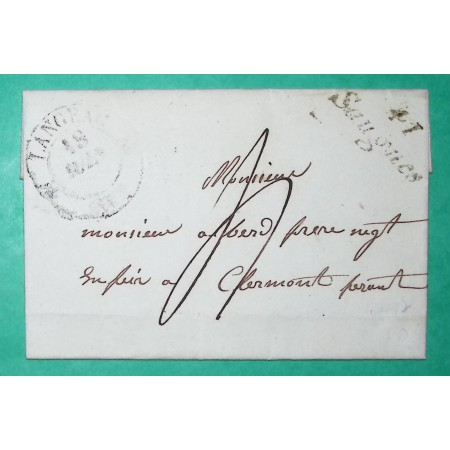 LANGEAC
18
41
Saugues
Monsieur
monsieur alverd frere negt
En foix a Clermont ferant